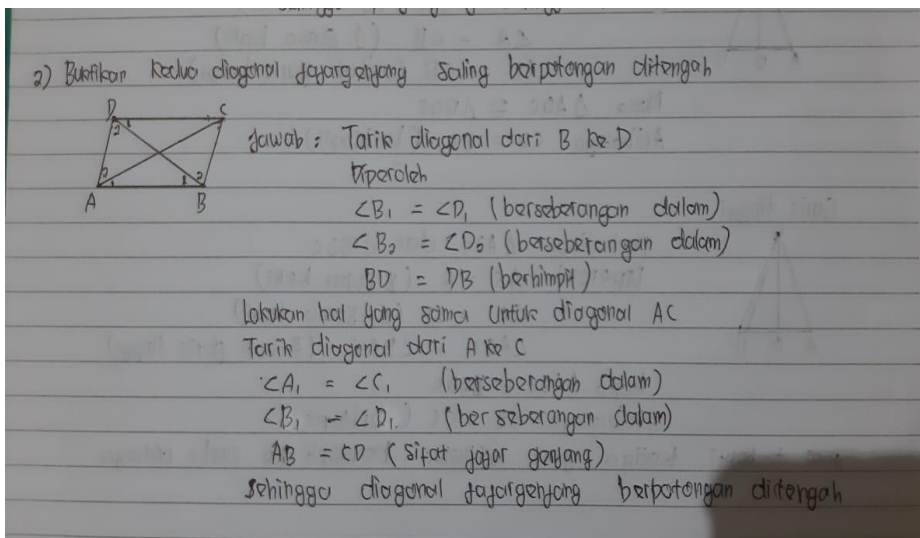 2) Buktikan kedua diagonal jajargenjang saling berpotongan ditengah
D C
Jawab : Tarik diagonal dari B ke D
Diperoleh
A B
∠B₁ = ∠D₁ (berseberangan dalam)
∠B₂ = ∠D₂ (berseberangan dalam)
BD = DB (berhimpit)
Lakukan hal yang sama untuk diagonal AC
Tarik diagonal dari A ke C
∠A₁ = ∠C₁ (berseberangan dalam)
∠B₁ = ∠D₁. (berseberangan dalam)
AB = CD (sifat jajar genjang)
Sehingga diagonal jajargenjang berpotongan ditengah